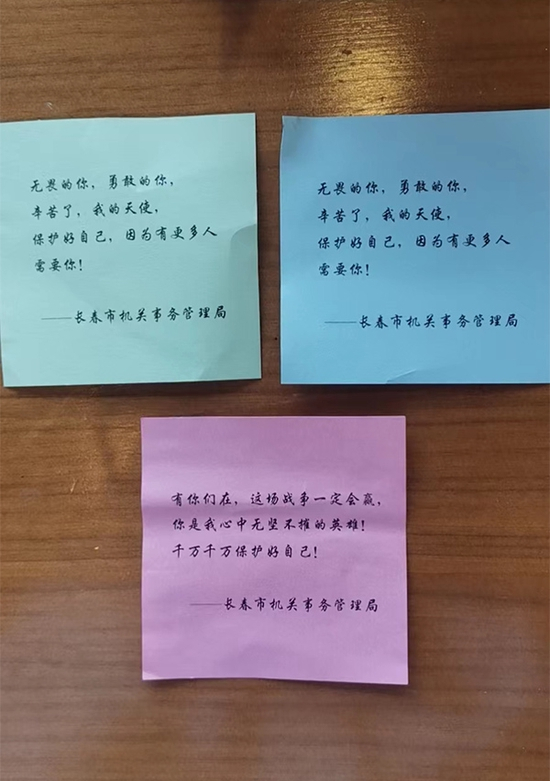 无畏的你，勇敢的你，
辛苦了，我的天使，
保护好自己，因为有更多人
需要你！
——长春市机关事务管理局
无畏的你，勇敢的你，
辛苦了，我的天使，
保护好自己，因为有更多人
需要你！
——长春市机关事务管理局
有你们在，这场战事一定会赢，
你是我心中无坚不摧的英雄！
千万千万保护好自己！
——长春市机关事务管理局